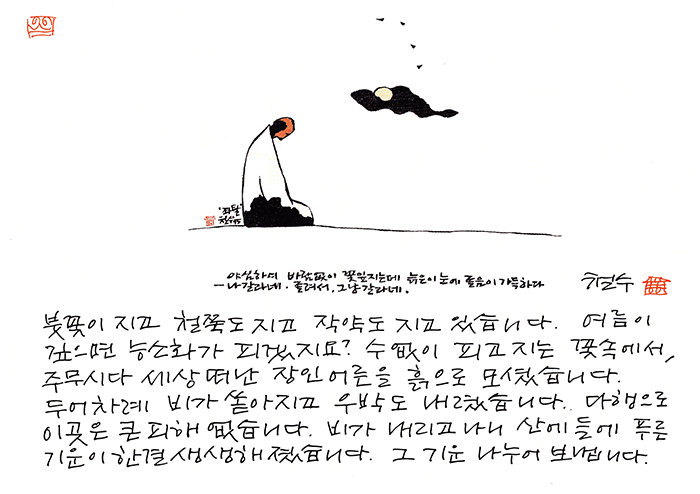 '좌탈'
야심하여 바람없이 꽃잎지는데 늙은이 눈에 졸음이 가득하다
— 나 갈라네. 졸려서, 그냥 갈라네.
철수
붓꽃이 지고 철쭉도 지고 작약도 지고 있습니다. 여름이
깊으면 능소화가 피겠지요? 수없이 피고 지는 꽃속에서,
주무시다 세상 떠난 장인어른을 흙으로 모셨습니다.
두어차례 비가 쏟아지고 우박도 내렸습니다. 다행으로
이곳은 큰 피해 없습니다. 비가 내리고 나니 산에 들에 푸른
기운이 한결 생생해졌습니다. 그 기운 나누어 보냅니다.